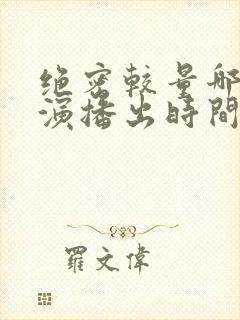 绝密较量邮
演播出時間
羅文偉